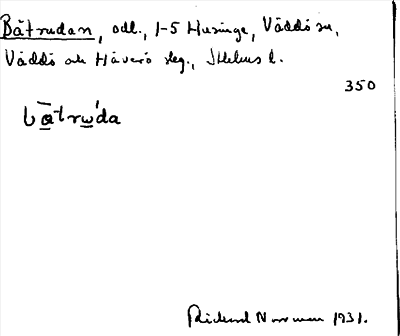 Båtrudan, odl., 1-5 Husinge, Väddö sn,
Väddö och Häverö slg., Sthlms l.
350
båtru'da
Rickard Norrman 1931.